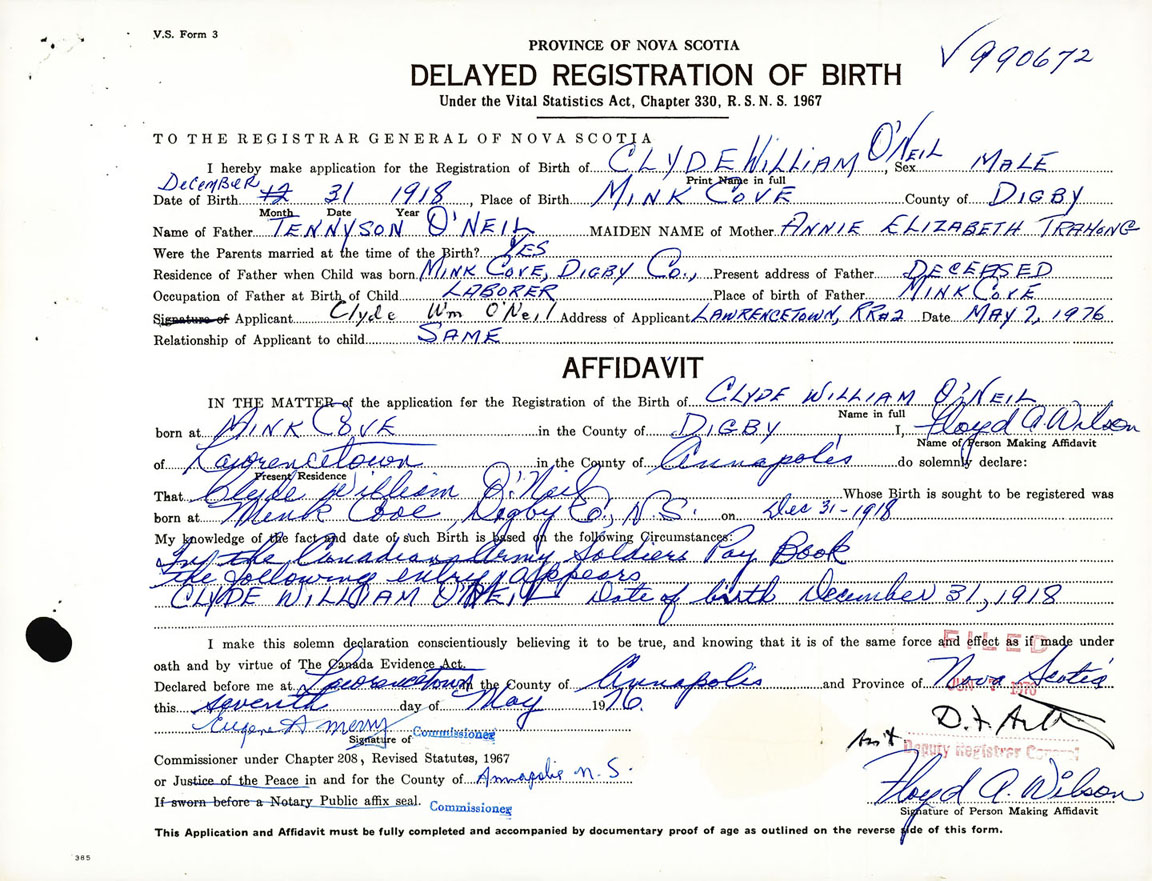 V.S. Form 3
PROVINCE OF NOVA SCOTIA
√990672
DELAYED REGISTRATION OF BIRTH
Under the Vital Statistics Act, Chapter 330, R.S.N.S. 1967
TO THE REGISTRAR GENERAL OF NOVA SCOTIA
I hereby make application for the Registration of Birth of CLYDE WILLIAM O'NEIL, Sex MALE
Print Name in full
DECEMBER
Date of Birth 12 31 1918, Place of Birth MINK COVE County of DIGBY
Month Date Year
Name of Father TENNYSON O'NEIL MAIDEN NAME of Mother ANNIE ELIZABETH TRAHONG
Were the Parents married at the time of the Birth? YES
Residence of Father when Child was born MINK COVE, DIGBY CO., Present address of Father DECEASED
Occupation of Father at Birth of Child LABORER Place of birth of Father MINK COVE
Signature of Applicant Clyde Wm O'Neil Address of Applicant LAWRENCETOWN, RR#2 Date MAY 7, 1976
Relationship of Applicant to child SAME
AFFIDAVIT
IN THE MATTER of the application for the Registration of the Birth of CLYDE WILLIAM O'NEIL
Name in full
born at MINK COVE in the County of DIGBY I, Floyd A. Wilson
Name of Person Making Affidavit
of Lawrencetown in the County of Annapolis do solemnly declare:
Present Residence
That Clyde William O'Neil Whose Birth is sought to be registered was
born at Mink Cove, Digby Co., N.S. on Dec 31-1918
My knowledge of the fact and date of such Birth is based on the following Circumstances:
In the Canadian Army Soldiers Pay Book
the following entry appears
CLYDE WILLIAM O'NEIL Date of birth December 31, 1918
I make this solemn declaration conscientiously believing it to be true, and knowing that it is of the same force and effect as if made under
FILED
oath and by virtue of The Canada Evidence Act.
Declared before me at Lawrencetown in the County of Annapolis and Province of Nova Scotia
JUN 1976
this seventh day of May 1976.
Eugene A Merry
Signature of Commissioner
D.F. Arth
Ass't Deputy Registrar General
Commissioner under Chapter 208, Revised Statutes, 1967
or Justice of the Peace in and for the County of Annapolis N.S.
If sworn before a Notary Public affix seal. Commissioner
Floyd A. Wilson
Signature of Person Making Affidavit
This Application and Affidavit must be fully completed and accompanied by documentary proof of age as outlined on the reverse side of this form.
385